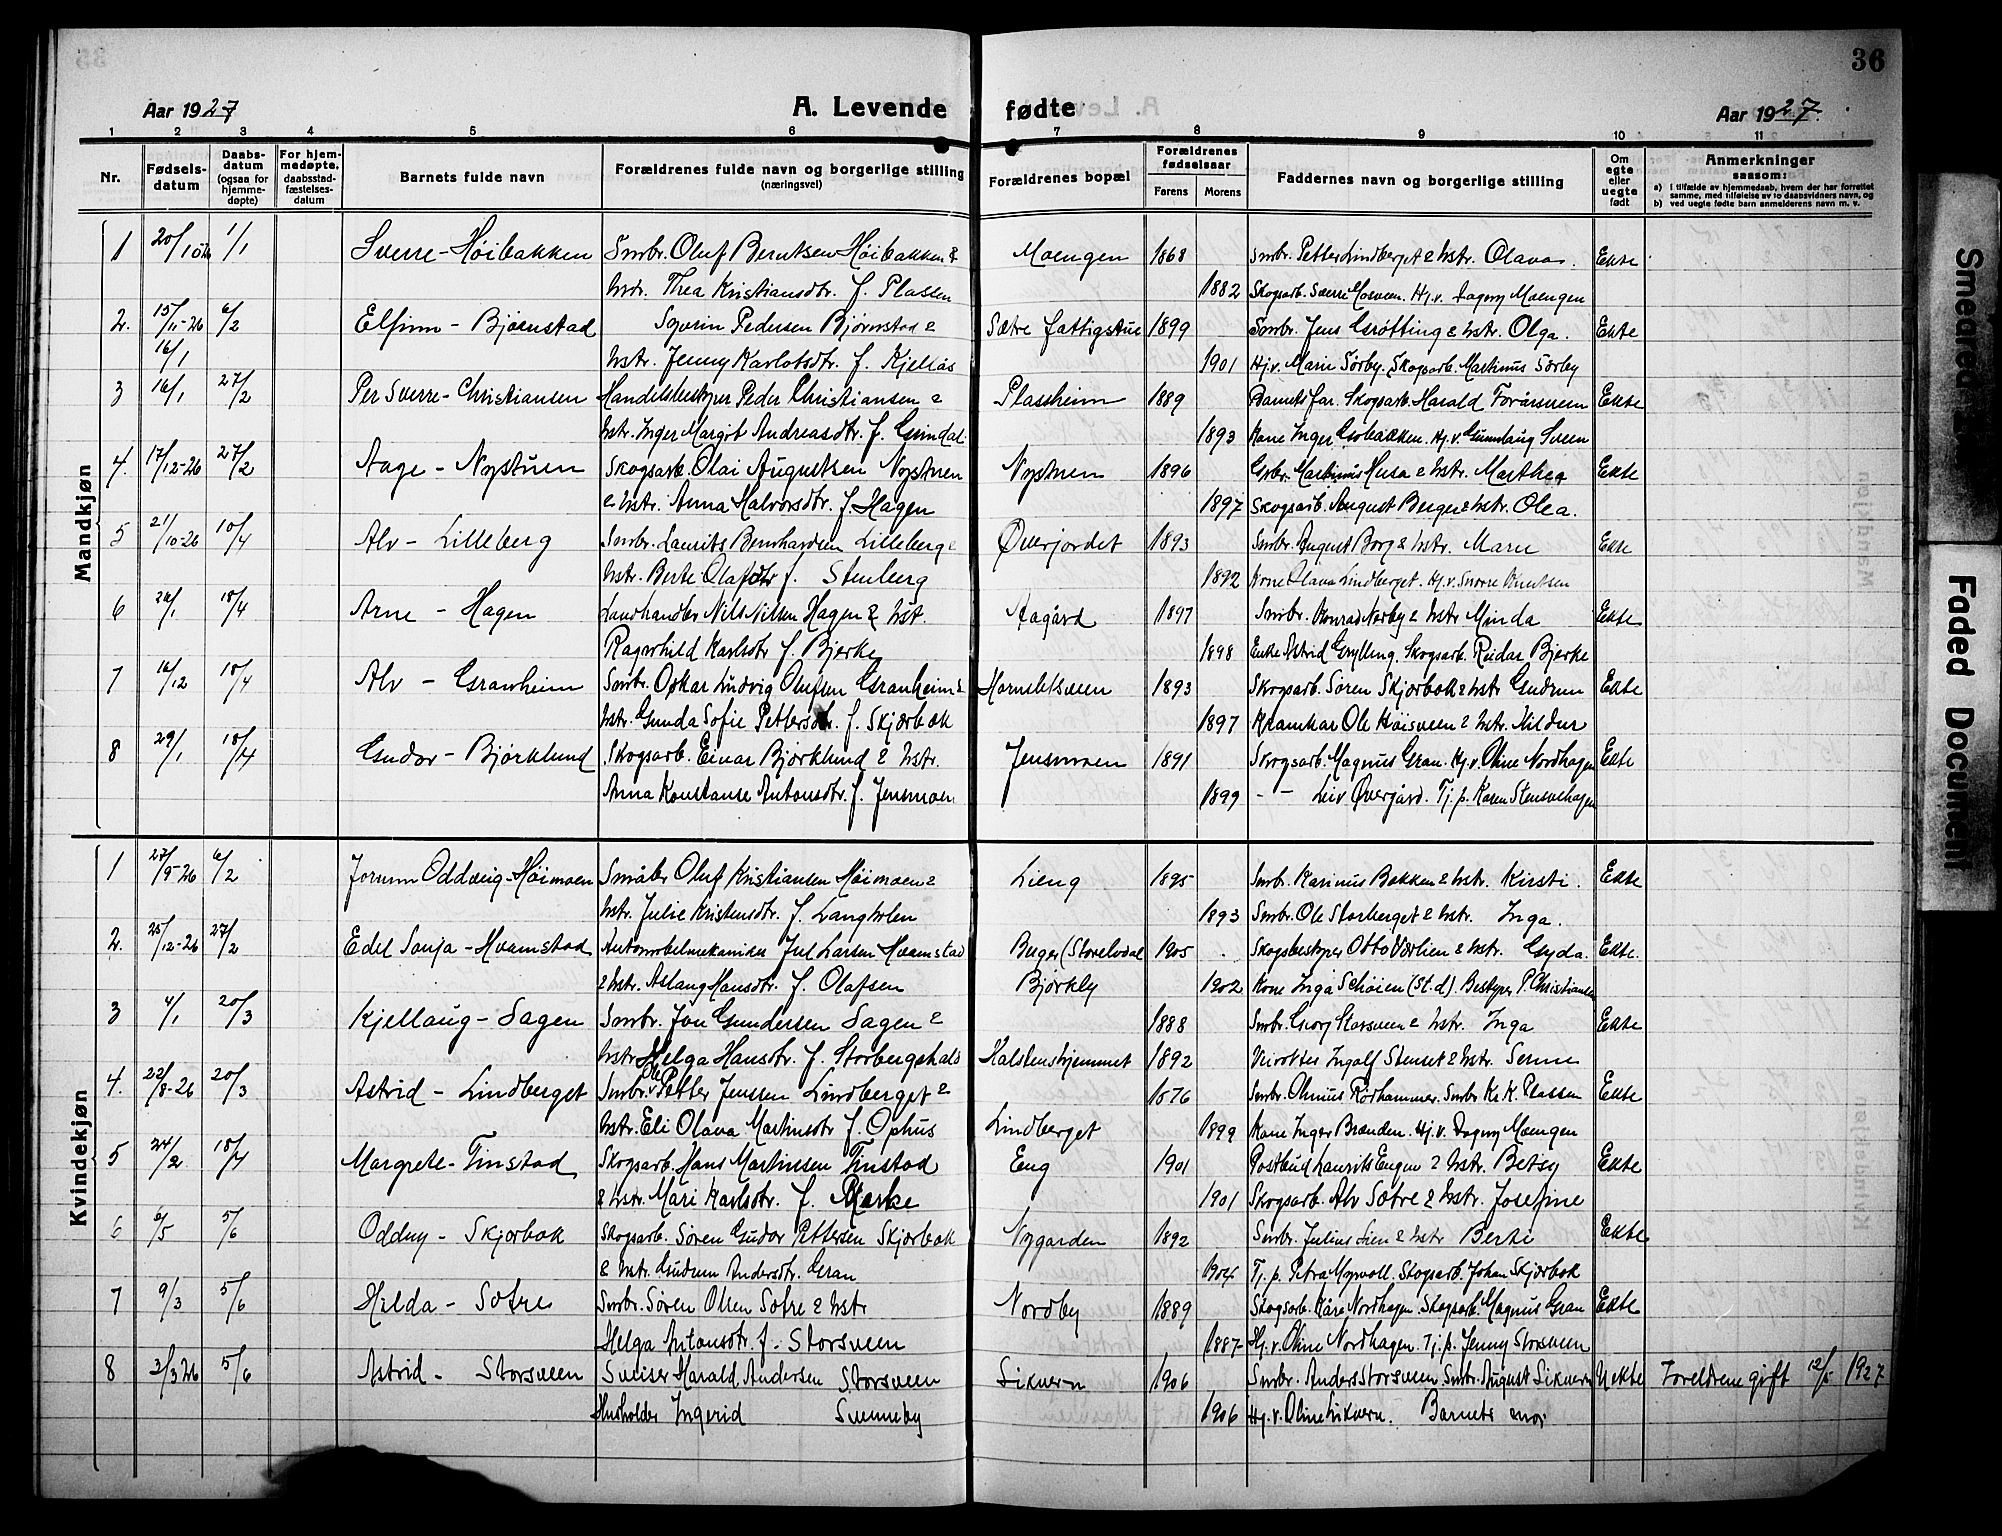 36
Aar 1927 A. Levende fødte Aar 1927.
1 2 3 4 5 6 7 8 9 10 11
Nr. Fødselsdatum Daabsdatum (ogsaa for hjemmedøpte) For hjemmedøpte. daabsstadfæstelsesdatum Barnets fulde navn Forældrenes fulde navn og borgerlige stilling (næringsvei) Forældrenes bopæl Forældrenes fødselsaar Farens Morens Faddernes navn og borgerlige stilling Om egte eller uegte født Anmerkninger saasom:
a) i tilfælde av hjemmedaab, hvem der har forrettet samme, med tilføielse av to daabsvidners navn, og
b) ved uegte fødte barn anmelderens navn m. v.
Mandkjøn
1 20/10 1/1 Sverre - Høibakken Smbr. Oluf Berntsen Høibakken & Moengen 1868 Smbr. Petter Lindberget & hstr. Olava. Ekte
hstr. Thea Kristiansdtr. f. Plassen 1882 Skogsarb. Sverre Mosveen. Hj.v. Dagny Moengen
2. 15/11-26 6/2 Elfinn - Bjørnstad Severin Pedersen Bjørnstad & Sætre fattigstue 1899 Smbr. Jens Grøtting & hstr. Olga. Ekte
16/1 hstr. Jenny Karlotsdtr. f. Kjellås 1901 Hj.v. Marie Sørby. Skogsarb. Martinus Sørby
3 16/1 27/2 Per Sverre - Christiansen Handelsbestyrer Peder Christiansen & Plassheim 1889 Barnets far. Skogsarb. Harald Forårsveen Ekte
hstr. Inger Margit Andreasdtr. f. Grindal. 1893 Kone Inger Grobakken. Hj.v. Gunnlaug Sveen
4. 17/12-26 27/2 Aage - Nystuen Skogsarb. Olai Augustsen Nystuen Nystuen 1896 Grbr. Martinus Husa & hstr. Marthea Ekte
& hstr. Anna Halvorsdtr. f. Hagen 1897 Skogsarb. August Berger & hstr. Olea.
5 21/10-26 10/4 Alv - Lilleberg Smbr. Laurits Bernhardsen Lilleberg & Øverjordet 1893 Smbr. August Borg & hstr. Marie Ekte
hstr. Berte Olafsdtr f. Stenberg 1892 Kone Olava Lindberget. Hj.v. Snorre Knutsen
6 26/1 18/4 Arne - Hagen Landhandler Nils Nilsen Hagen & hst. Aagård 1897 Smbr. Konrad Nerby & hstr Minda Ekte
Ragnhild Karlsdtr f. Bjerke 1898 Enke Astrid Grylling. Skogsarb. Reidar Bjerke
7 16/12 18/4 Alv - Granheim Smbr. Oskar Ludvig Olufsen Granheim & Hornsletsveen 1893 Skogsarb. Søren Skjærbæk & hstr Gudrun Ekte
hstr. Gunda Sofie Pettersdtr. f. Skjærbæk 1897 Kramkar Ole Høisveen & hstr. Hildur
8 29/1 18/4 Gudor - Bjørklund Skogsarb. Einar Bjørklund & hstr. Jensmoen 1891 Skogsarb. Magnus Gran. Hj.v. Oline Nordhagen Ekte
Anna Konstanse Antonsdtr. f. Jensmoen 1899 - - Leiv Øvergård. Tj.p. Karen Stensvehagen
Kvindekjøn
1 27/9-26 6/2 Jorunn Oddveig - Høimoen Småbr Oluf Kristiansen Høimoen & Lieng 1895 Smbr. Karinus Bakken & hstr. Kirsti. Ekte
hstr. Julie Kristensdtr. f. Langholen 1893 Smbr. Ole Storberget & hstr. Inga.
2. 25/12-26 27/2 Edel Sonja - Hvamstad Automobilmekaniker Jul Larsen Hvamstad Buger (Storelvdal 1905 Skogsbestyrer Otto Værlien & hstr. Gyda. Ekte.
& hstr. Aslaug Hansdtr. f. Olafsen Bjørkly 1902 Kone Inga Schøien (St.d). Bestyrer P. Christiansen
3 4/1 20/3 Kjellaug - Sagen Smbr. Jon Gundersen Sagen & 1888 Smbr. Georg Storsveen & hstr. Inga Ekte
hstr Helga Hansdtr. f. Storbergshals Halstenshjemmet 1892 Veivokter Ingolf Stenset & hstr. Serine
4. 22/8-26 20/3 Astrid - Lindberget Smbr. Ole Petter Jenssen Lindberget & 1876 Smbr. Olinus Rødhammer. Smbr K. K. Plassen Ekte
hstr. Eli Olava Martinsdtr f. Ophus Lindberget 1899 Kone Inger Brænden. Hj.v. Dagny Moengen
5 24/2 18/4 Margrete - Finstad Skogsarb. Hans Martinsen Finstad Eng 1901 Postbud Laurits Engen & hstr. Betsy Ekte
& hstr. Mari Karlsdtr. f. Kirke 1901 Skogsarb. Alv Sætre & hstr. Josefine
6 6/5 5/6 Oddny - Skjærbæk Skogsarb. Søren Gudor Pettersen Skjærbæk Nygarden 1892 Smbr. Julius Lien & hstr Berte Ekte
& hstr. Gudrun Andersdtr. Gran 1904 Tj.p. Petra Myrvoll. Skogsarb. Johan Skjærbæk
7 9/3 5/6 Hilda - Sætre Smbr. Søren Olsen Sætre & hstr Nordby 1889 Skogsarb. Kåre Nordhagen. Skogsarb. Magnus Gran Ekte
Helga Antonsdtr f. Storsveen 1887 Hj.v. Oline Nordhagen. Tj.p. Jenny Storsveen
8 3/3 26 5/6 Astrid - Storsveen Sveiser Harald Andersen Storsveen Sikvern 1906 Smbr. Anders Storsveen Smbr. August Sikvern Uekte Foreldrene gift 12/5 1927
Husholder Ingerid Svenneby 1906 Hj.v. Oline Sikvern. Barnets mor
Smeared
Faded Document